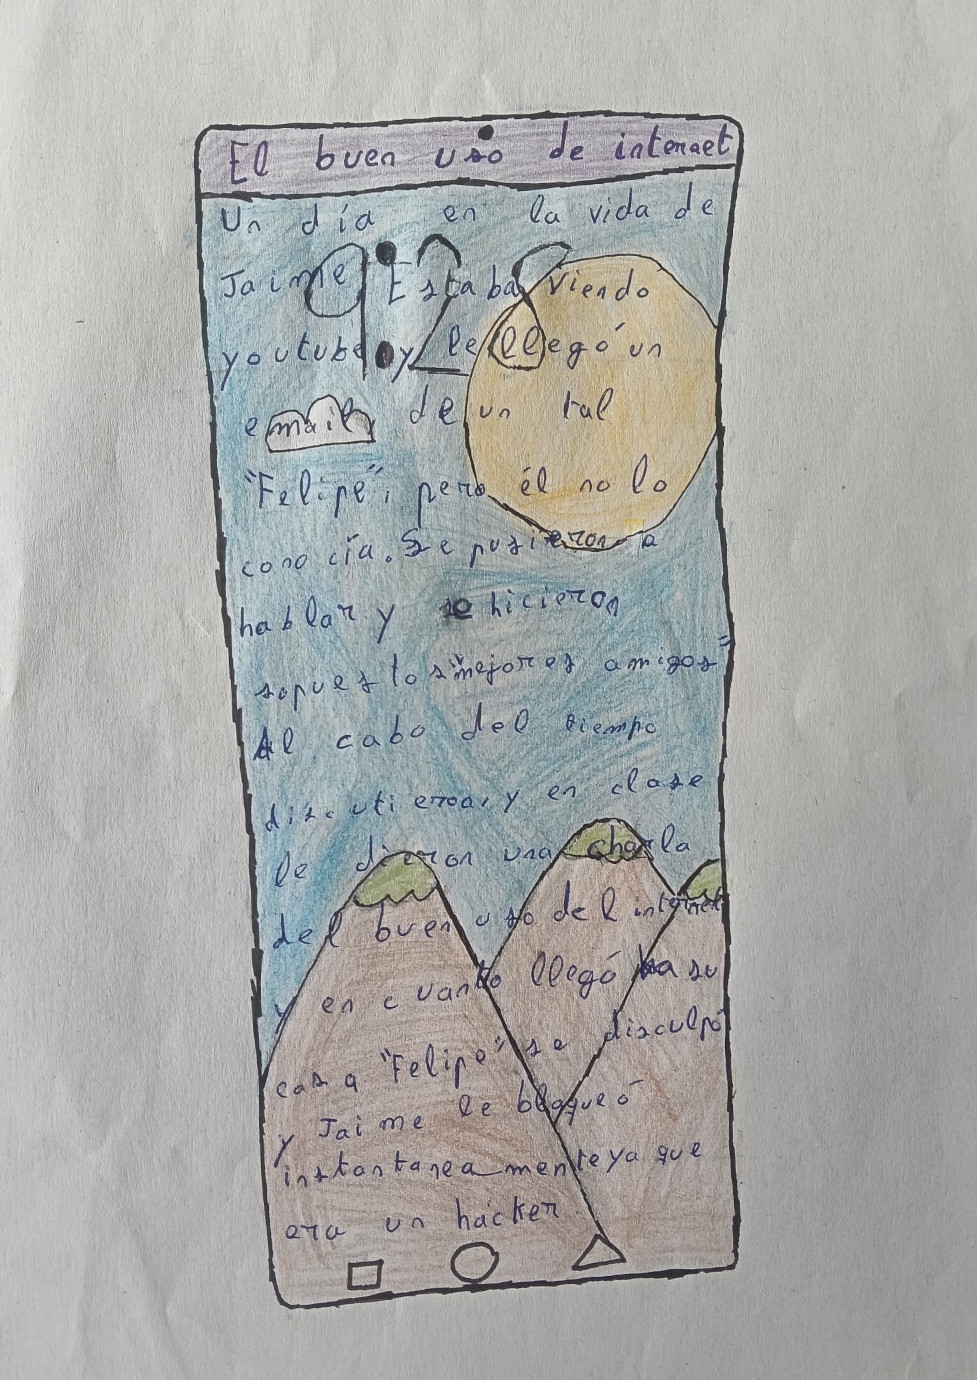 El buen uso de internet
Un día en la vida de
Jaime. Estaba viendo
youtube y le llegó un
email de un tal
"Felipe", pero él no lo
conocía. Se pusieron a
hablar y se hicieron
supuestos "mejores amigos"
Al cabo del tiempo
discutieron, y en clase
le dieron una charla
del buen uso del internet
y en cuanto llegó a su
casa "Felipe" se disculpó
y Jaime le bloqueó
instantaneamente ya que
era un hacker